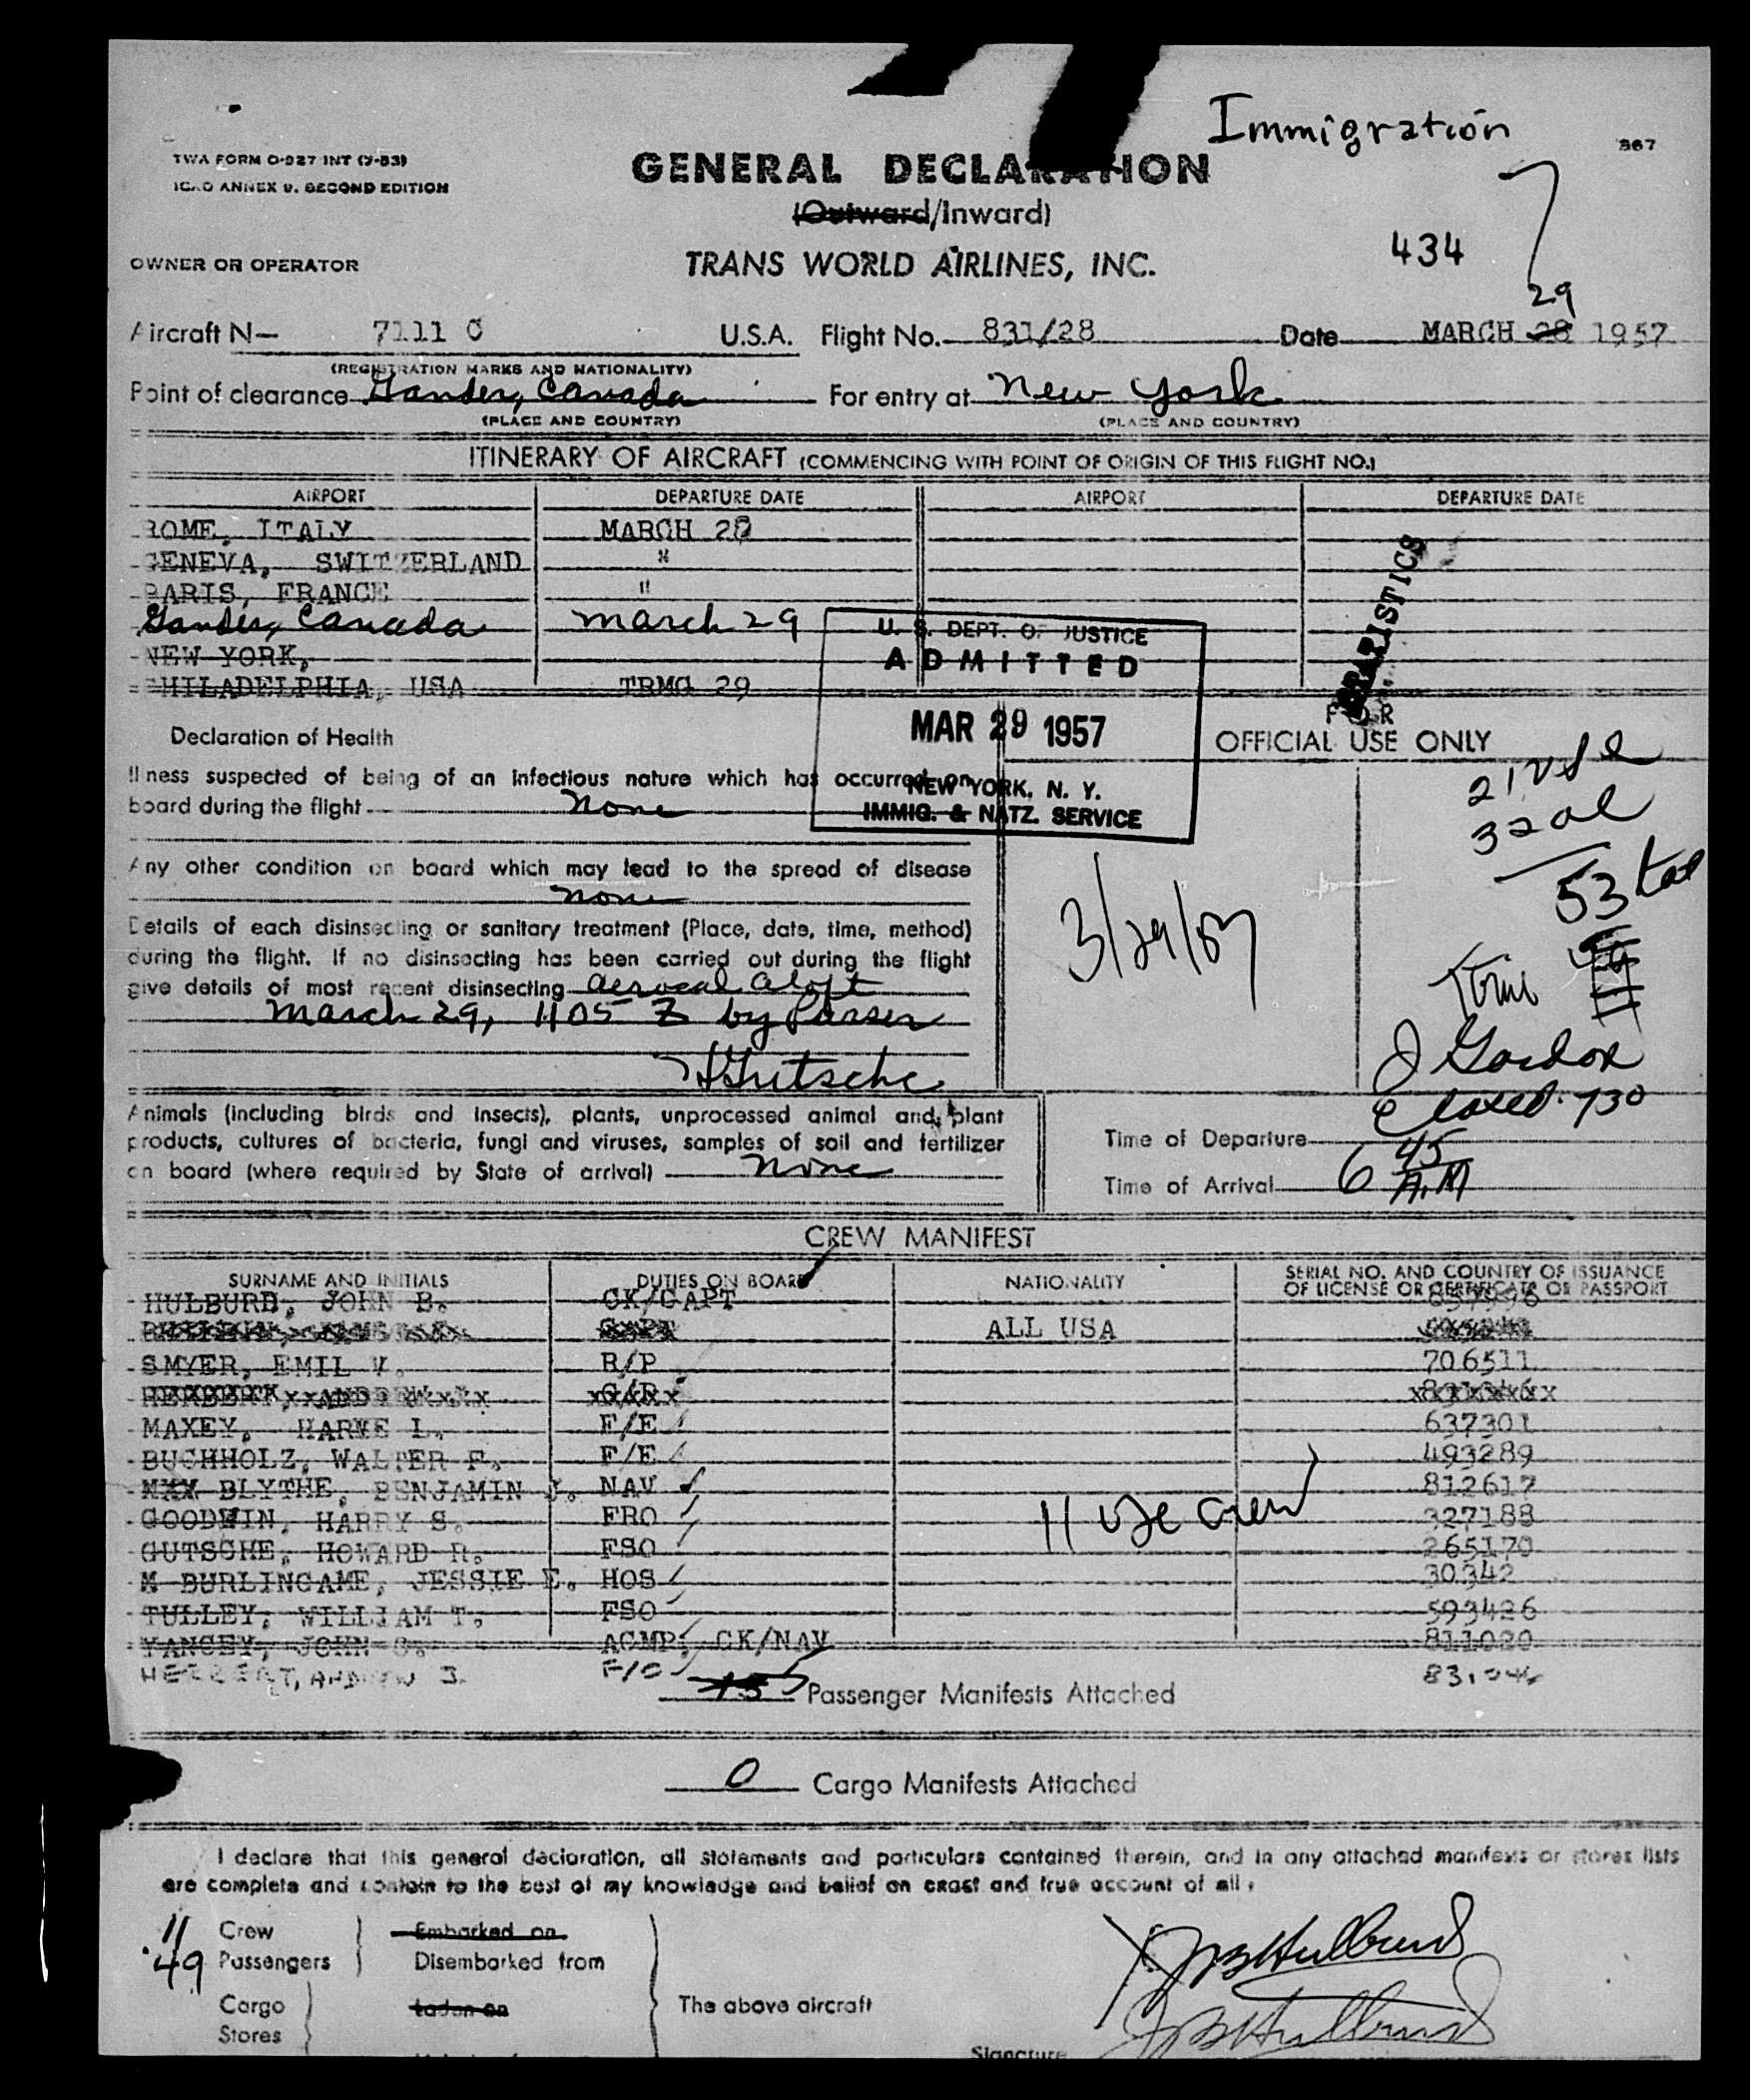 Immigration
TWA FORM O-927 INT (7-53)
367
ICAO ANNEX 9. SECOND EDITION
GENERAL DECLARATION
(Outward/Inward)
434
OWNER OR OPERATOR
TRANS WORLD AIRLINES, INC.
29
Aircraft N— 7111 C U.S.A. Flight No. 831/28 Date MARCH 28 1957
(REGISTRATION MARKS AND NATIONALITY)
Point of clearance Gander, Canada For entry at New York
(PLACE AND COUNTRY) (PLACE AND COUNTRY)
ITINERARY OF AIRCRAFT (COMMENCING WITH POINT OF ORIGIN OF THIS FLIGHT NO.)
AIRPORT DEPARTURE DATE AIRPORT DEPARTURE DATE
ROME, ITALY MARCH 28
GENEVA, SWITZERLAND "
PARIS, FRANCE "
Gander, Canada March 29
NEW YORK,
PHILADELPHIA, USA TRMG 29
STATISTICS
U. S. DEPT. OF JUSTICE
ADMITTED
MAR 29 1957
NEW YORK, N. Y.
IMMIG. & NATZ. SERVICE
FOR
OFFICIAL USE ONLY
Declaration of Health
Illness suspected of being of an infectious nature which has occurred on
board during the flight None
32 al
53 tal
Any other condition on board which may lead to the spread of disease
None
3/29/57
Details of each disinsecting or sanitary treatment (Place, date, time, method)
during the flight. If no disinsecting has been carried out during the flight
give details of most recent disinsecting Aerosol Aloft
March 29, 1105 Z by Purser
HGutsche
J Gordon
Closed 730
Animals (including birds and insects), plants, unprocessed animal and plant
products, cultures of bacteria, fungi and viruses, samples of soil and fertilizer
on board (where required by State of arrival) None
Time of Departure
Time of Arrival 6 45 A.M
CREW MANIFEST
SURNAME AND INITIALS DUTIES ON BOARD NATIONALITY SERIAL NO. AND COUNTRY OF ISSUANCE
OF LICENSE OR CERTIFICATE OR PASSPORT
HULBURD, JOHN B. CK/CAPT
ALL USA
SMYER, EMIL V. R/P 706511
MAXEY, HARVE L. F/E 637301
BUCHHOLZ, WALTER F. F/E 493289
BLYTHE, BENJAMIN J. NAV 812617
GOODWIN, HARRY S. FRO 327188
GUTSCHE, HOWARD R. FSO 265170
BURLINGAME, JESSIE E. HOS 30342
TULLEY, WILLIAM T. FSO 593426
YANCEY, JOHN C. ACMP, CK/NAV 811020
HERBERT, ANDREW J. F/O
11 USC crew
15 Passenger Manifests Attached
0 Cargo Manifests Attached
I declare that this general declaration, all statements and particulars contained therein, and in any attached manifests or stores lists
are complete and contain to the best of my knowledge and belief an exact and true account of all
11 Crew Embarked on
49 Passengers Disembarked from
Cargo Laden on The above aircraft
Stores
JBHulburd
JBHulburd
Signature